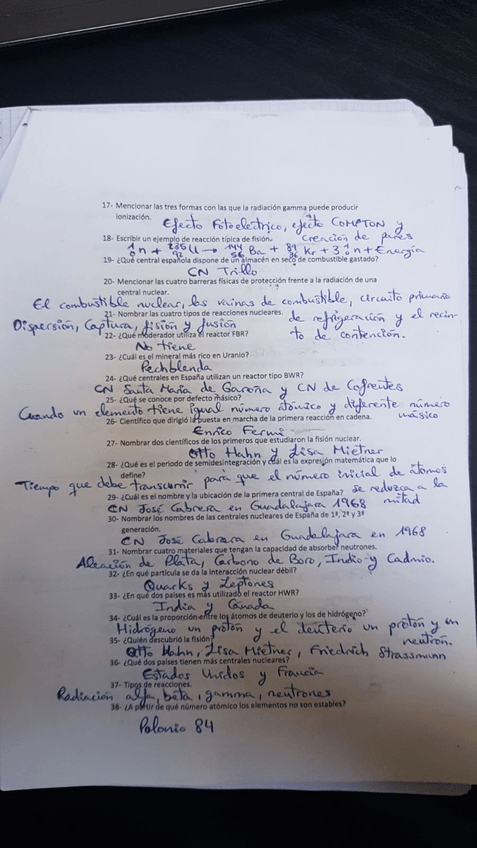 17- Mencionar las tres formas con las que la radiación gamma puede producir
ionización.
Efecto Fotoeléctrico, efecto COMPTON y
creación de pares
18- Escribir un ejemplo de reacción típica de fisión.
¹₀n + ²³⁵₉₂U → ¹⁴⁴₅₆Ba + ⁸⁹₃₆Kr + 3 ¹₀n + Energía
19- ¿Qué central española dispone de un almacén en seco de combustible gastado?
CN Trillo
20- Mencionar las cuatro barreras físicas de protección frente a la radiación de una
central nuclear.
El combustible nuclear, las vainas de combustible, circuito primario
de refrigeración y el recin-
to de contención.
21- Nombrar las cuatro tipos de reacciones nucleares.
Dispersión, Captura, fisión y fusión
22- ¿Qué moderador utiliza el reactor FBR?
No tiene
23- ¿Cuál es el mineral más rico en Uranio?
Pechblenda
24- ¿Qué centrales en España utilizan un reactor tipo BWR?
CN Santa María de Garoña y CN de Cofrentes
25- ¿Qué se conoce por defecto másico?
Cuando un elemento tiene igual número atómico y diferente número
másico
26- Científico que dirigió la puesta en marcha de la primera reacción en cadena.
Enrico Fermi
27- Nombrar dos científicos de los primeros que estudiaron la fisión nuclear.
Otto Hahn y Lisa Mietner
28- ¿Qué es el periodo de semidesintegración y cuál es la expresión matemática que lo
define?
Tiempo que debe transcurrir para que el número inicial de átomos
se reduzca a la
mitad
29- ¿Cuál es el nombre y la ubicación de la primera central de España?
CN José Cabrera en Guadalajara 1968
30- Nombrar los nombres de las centrales nucleares de España de 1ª, 2ª y 3ª
generación.
CN José Cabrara en Guadalajara en 1968
31- Nombrar cuatro materiales que tengan la capacidad de absorber neutrones.
Aleación de Plata, Carbono de Boro, Indio y Cadmio.
32- ¿En qué partícula se da la interacción nuclear débil?
Quarks y Leptones
33- ¿En qué dos países es más utilizado el reactor HWR?
India y Canada
34- ¿Cuál es la proporción entre los átomos de deuterio y los de hidrógeno?
Hidrógeno un protón y el deuterio un protón y un
neutrón.
35- ¿Quién descubrió la fisión?
Otto Hahn, Lisa Mietner, Friedrich Strassmann
36- ¿Qué dos países tienen más centrales nucleares?
Estados Unidos y Francia
37- Tipos de reacciones.
Radiación alfa, beta, gamma, neutrones
38- ¿A partir de qué número atómico los elementos no son estables?
Polonio 84